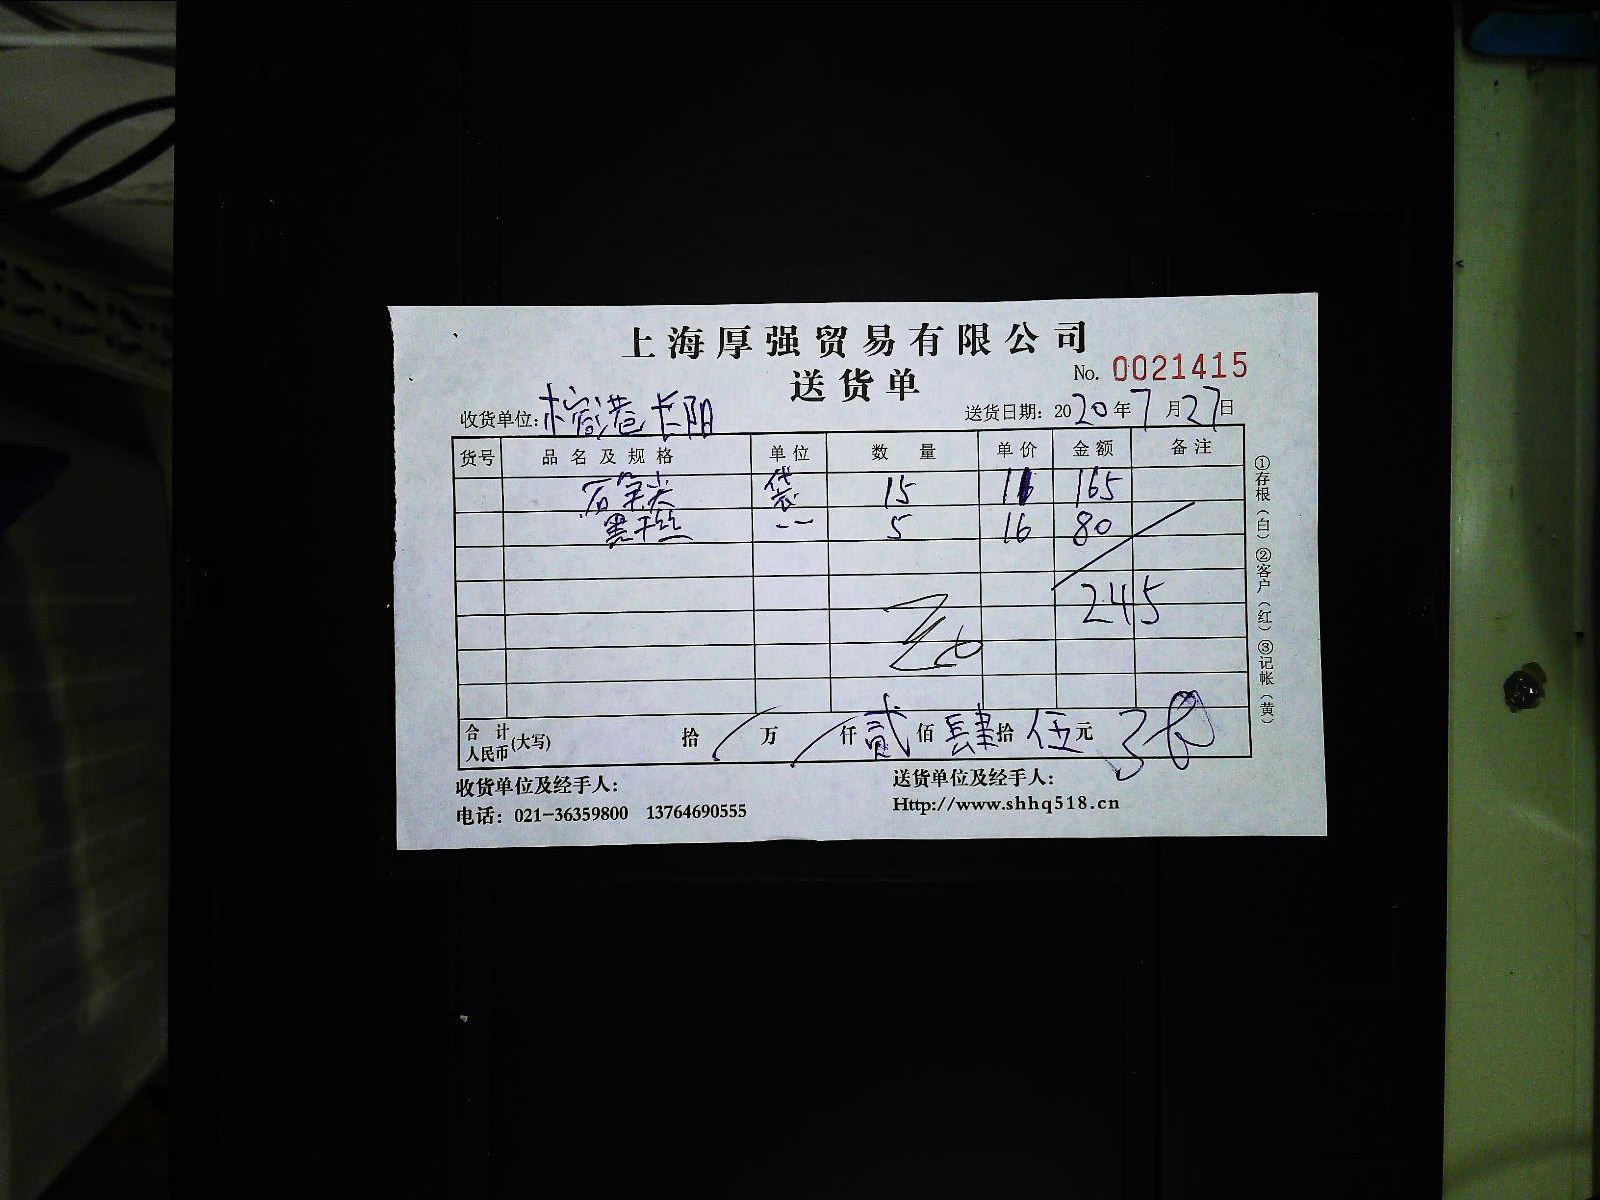 上海厚强贸易有限公司
送货单
No. 0021415
收货单位: 港 长阳
送货日期: 2020年7月27日
货号 品名及规格 单位 数量 单价 金额 备注
石 尖 袋 15 11 165
黑 丝 -- 5 16 80
245
合计人民币(大写) 拾 万 仟 贰 佰 肆 拾 伍 元
收货单位及经手人: 送货单位及经手人:
电话: 021-36359800 13764690555 Http://www.shhq518.cn
①存根(白)②客户(红)③记帐(黄)